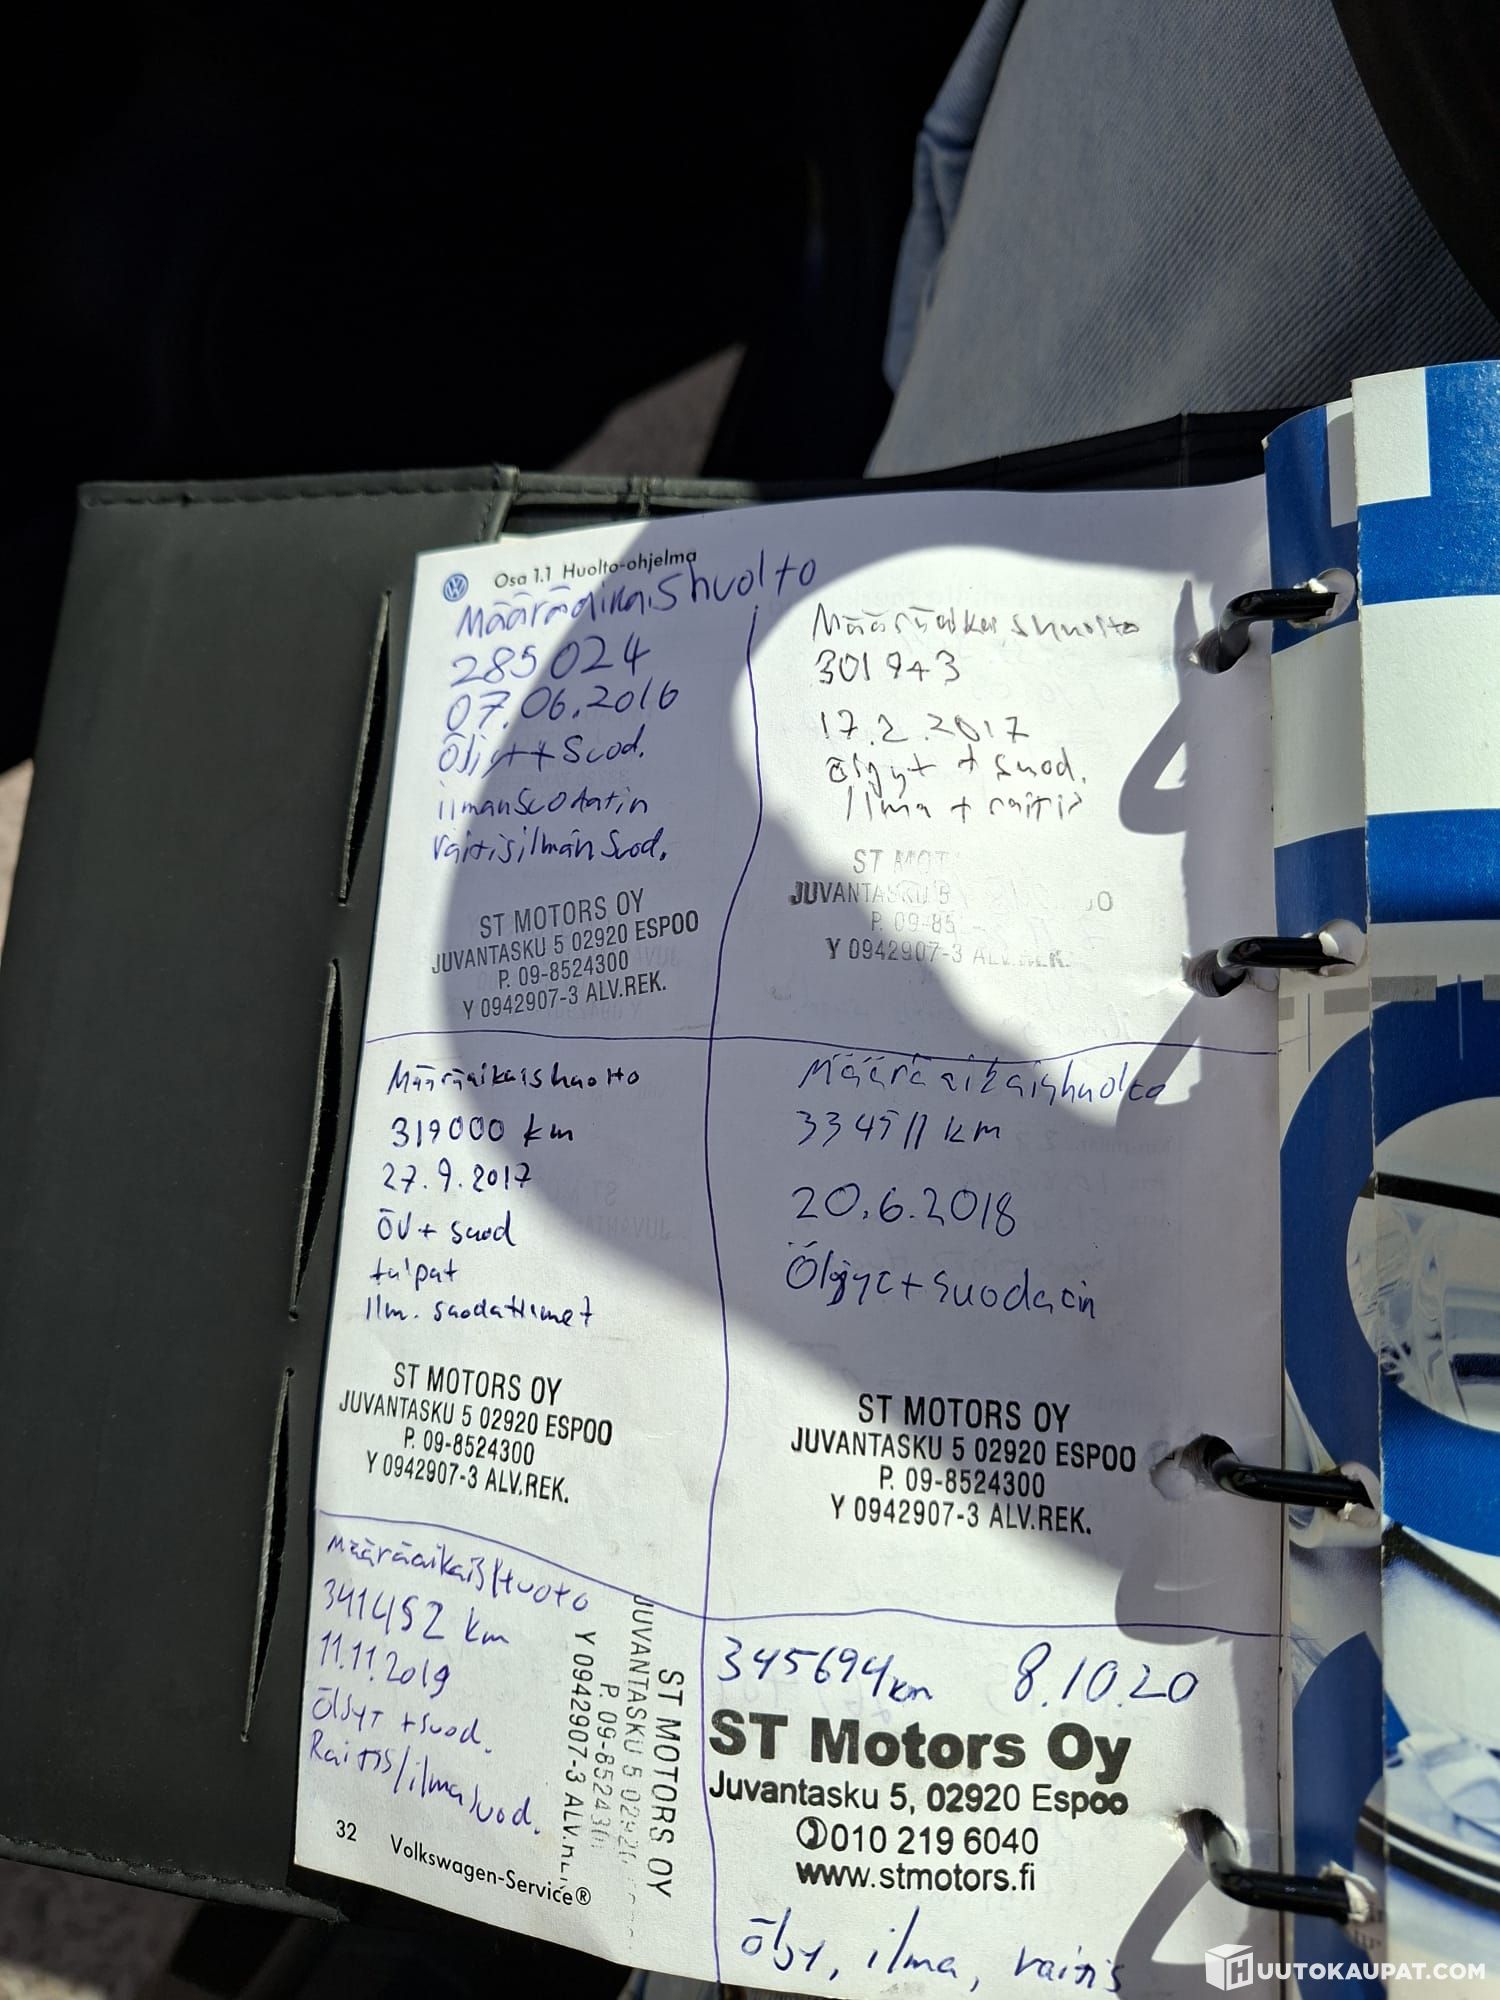 Osa 1.1 Huolto-ohjelma
Määräaikaishuolto
285024
07.06.2016
Öljyt + Suod.
ilmansuodatin
raitisilman suod.
ST MOTORS OY
JUVANTASKU 5 02920 ESPOO
P. 09-8524300
Y 0942907-3 ALV.REK.
Määräaikaishuolto
301943
17.2.2017
öljyt + suod.
Ilma + raitis
ST MOT
JUVANTASKU
P. 09-85
Y 0942907-3 ALV.REK.
Määräaikaishuolto
319000 km
27.9.2017
ÖV + suod
tulpat
Ilm. suodattimet
ST MOTORS OY
JUVANTASKU 5 02920 ESPOO
P. 09-8524300
Y 0942907-3 ALV.REK.
Määräaikaishuolto
334511 km
20.6.2018
Öljyt + suodatin
ST MOTORS OY
JUVANTASKU 5 02920 ESPOO
P. 09-8524300
Y 0942907-3 ALV.REK.
Määräaikaishuolto
341452 km
11.11.2019
Öljyt + suod.
Raitis/ilmasuod.
ST MOTORS OY
JUVANTASKU 5 02920
P. 09-852430
Y 0942907-3
345694 km 8.10.20
ST Motors Oy
Juvantasku 5, 02920 Espoo
010 219 6040
www.stmotors.fi
öljy, ilma, raitis
32
Volkswagen-Service®
HUUTOKAUPAT.COM